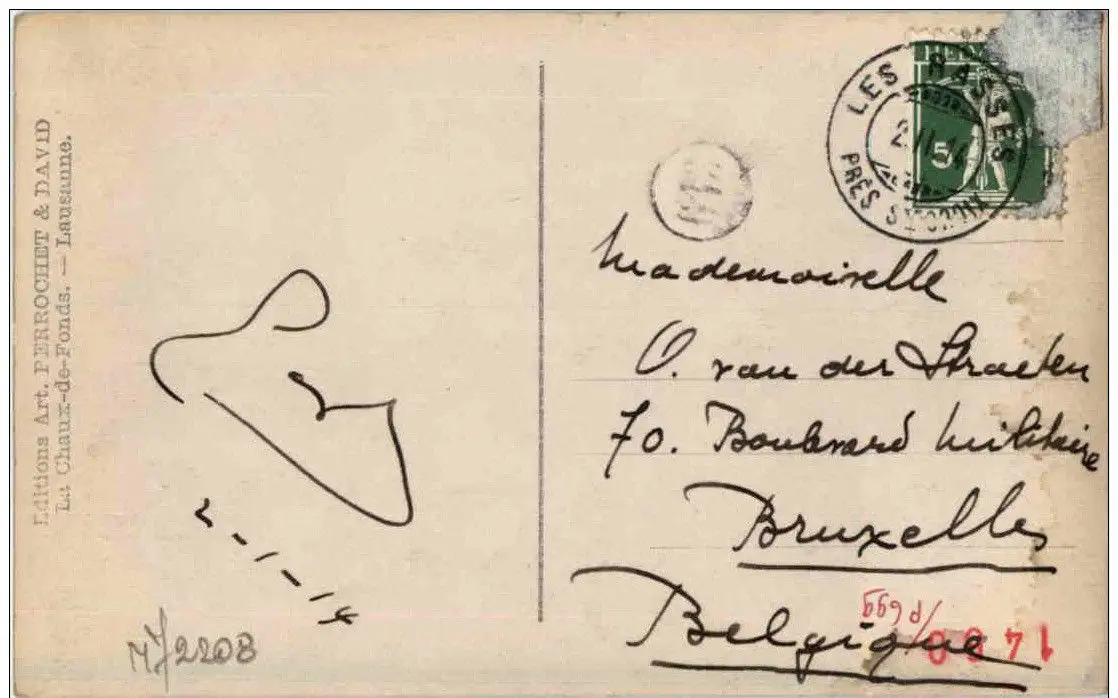 Editions Art. PERROCHET & DAVID
La Chaux-de-Fonds. — Lausanne.
LES RASSES
PRÈS STE CROIX
5
Mademoiselle
O. van der Straeten
70. Boulevard Militaire
Bruxelles
Belgique
2-1-14
N72208